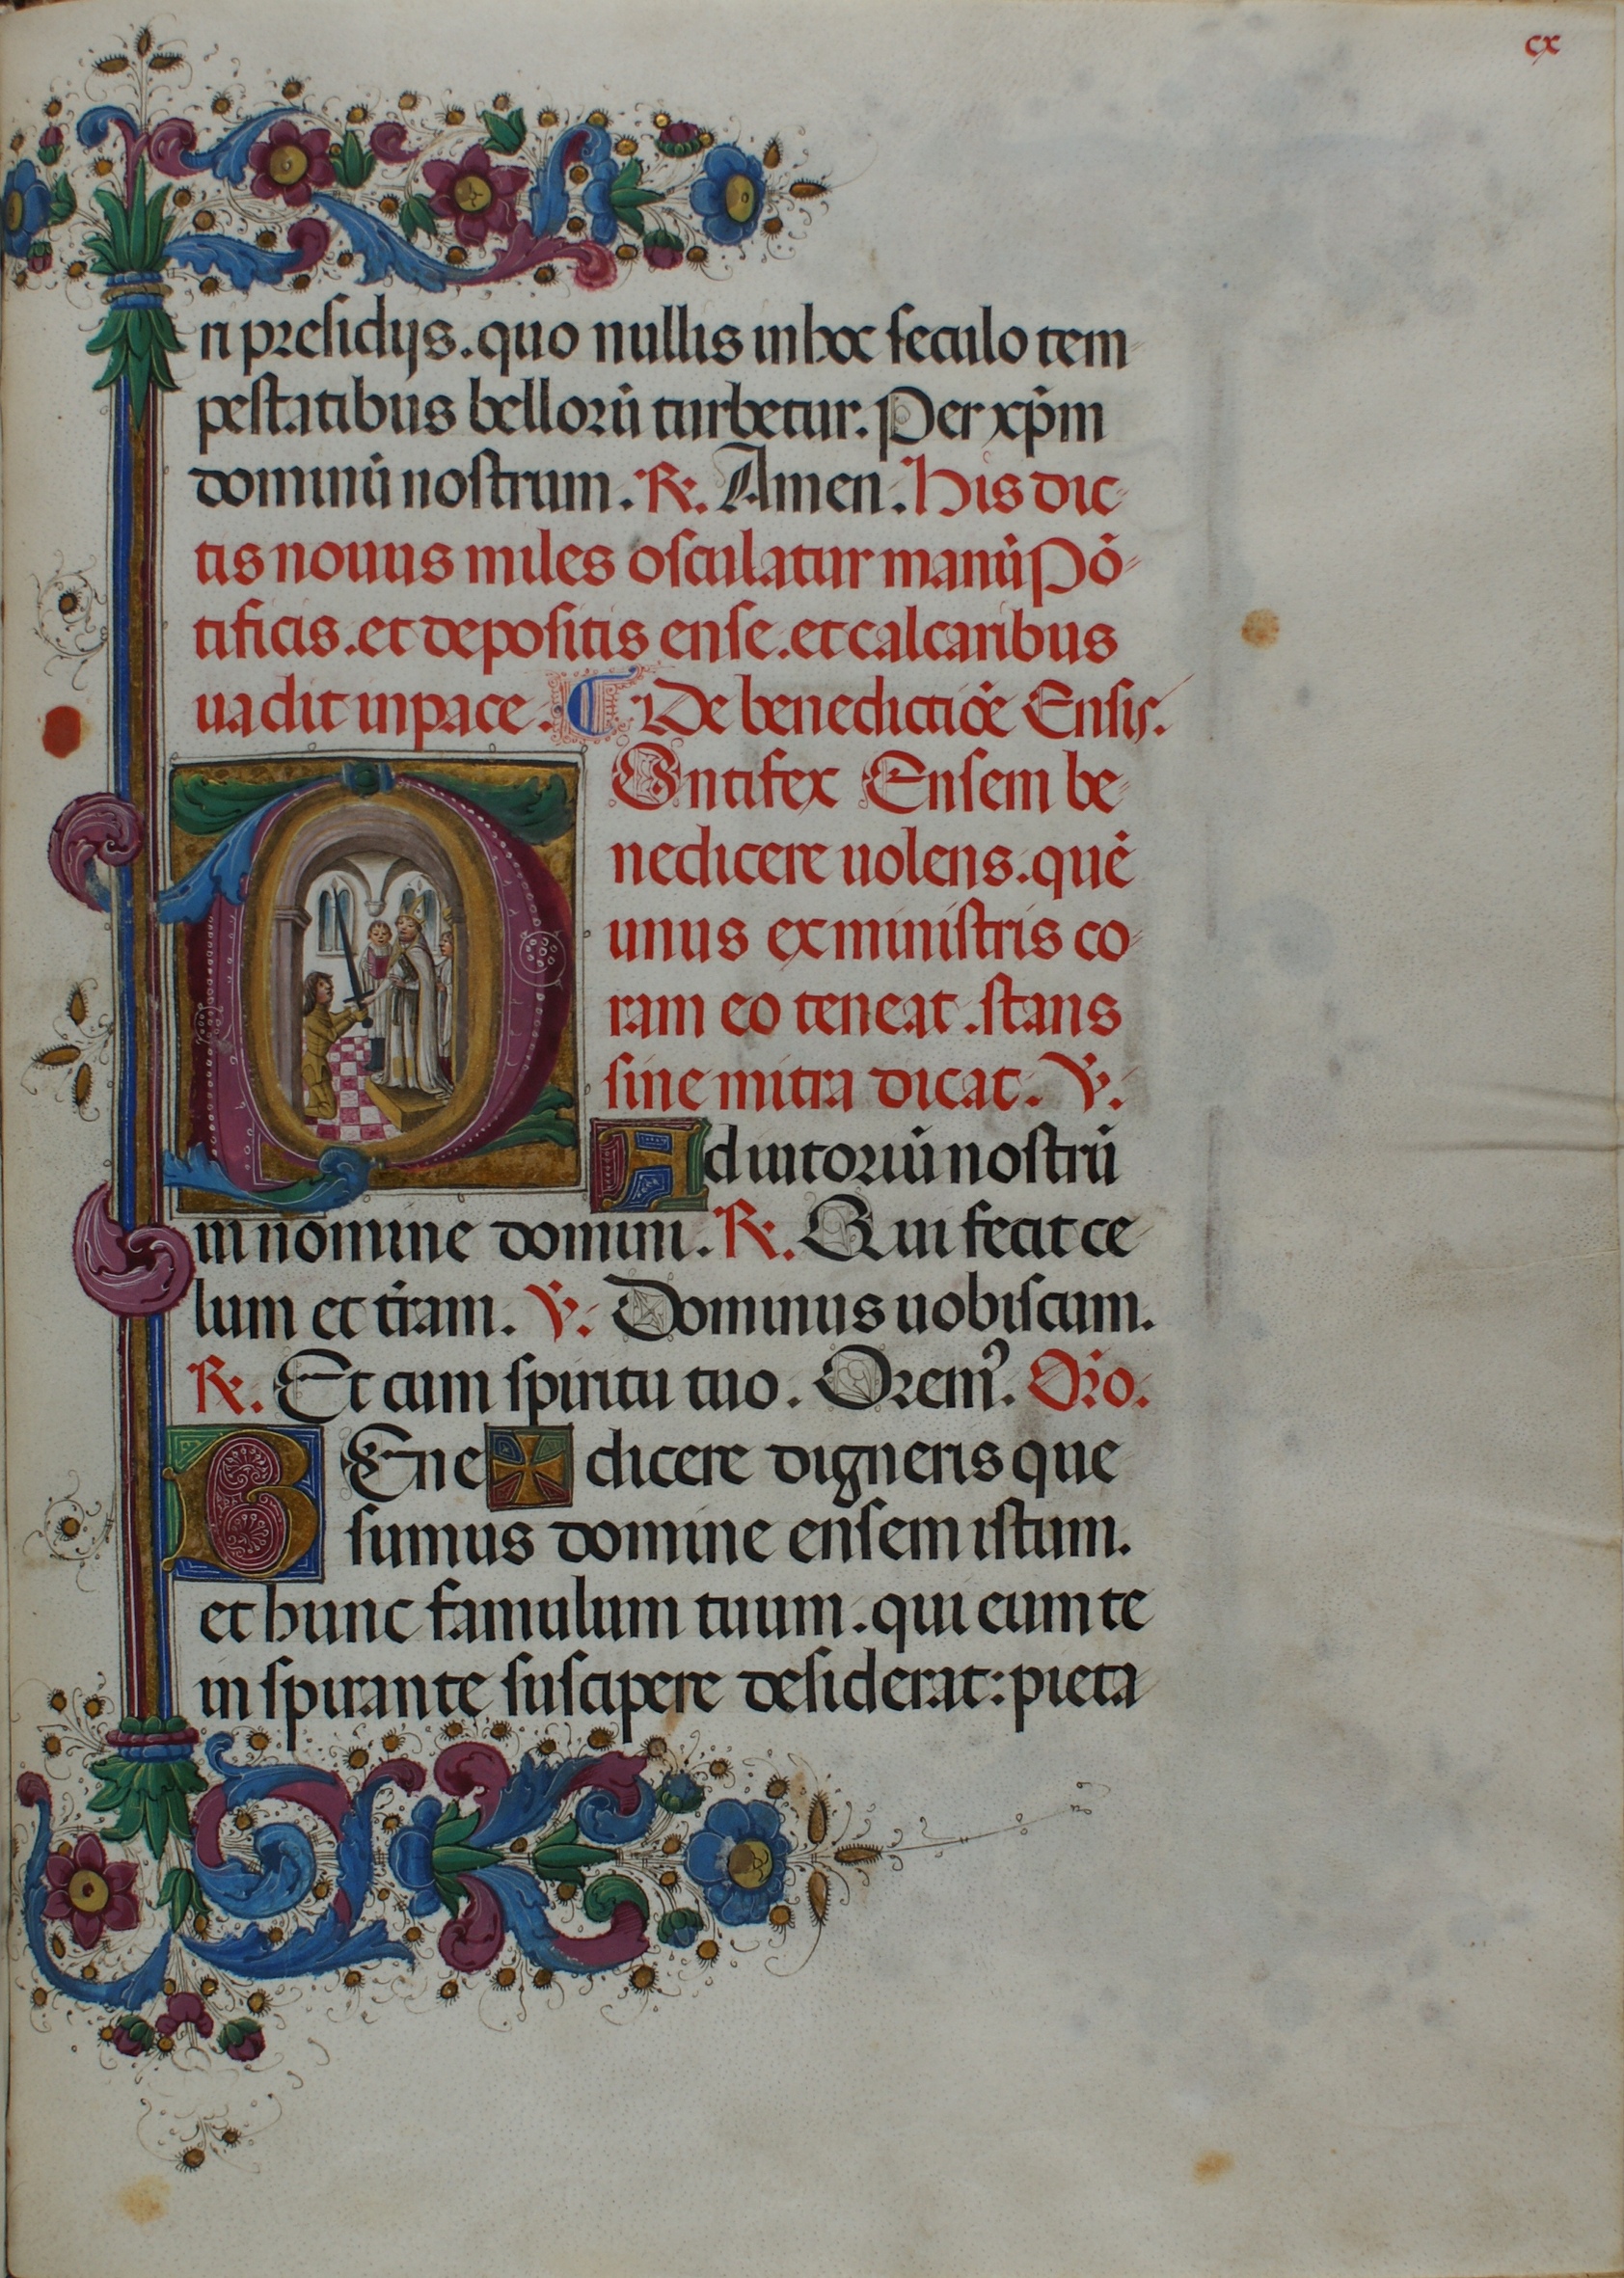 cx
ri presidijs. quo nullis in hoc seculo tem-
pestatibus bellorū turbetur. Per xp̄m
dominū nostrum. ℟. Amen. His dic-
tis nouus miles osculatur manū Pō-
tificis. et depositis ense. et calcaribus
uadit in pace. De benedictiōe Ensis.
Ontifex Ensem be-
nedicere uolens. quē
unus ex ministris co-
ram eo teneat. stans
sine mitra dicat. ℣.
Adiutoriū nostrū
in nomine domini. ℟. Qui fecit ce-
lum et t̄ram. ℣. Dominus uobiscum.
℟. Et cum spiritu tuo. Oremꝰ. Or̄o.
BEne ✠ dicere digneris que
sumus domine ensem istum.
et hunc famulum tuum. qui eum te
inspirante suscipere desiderat: pieta-